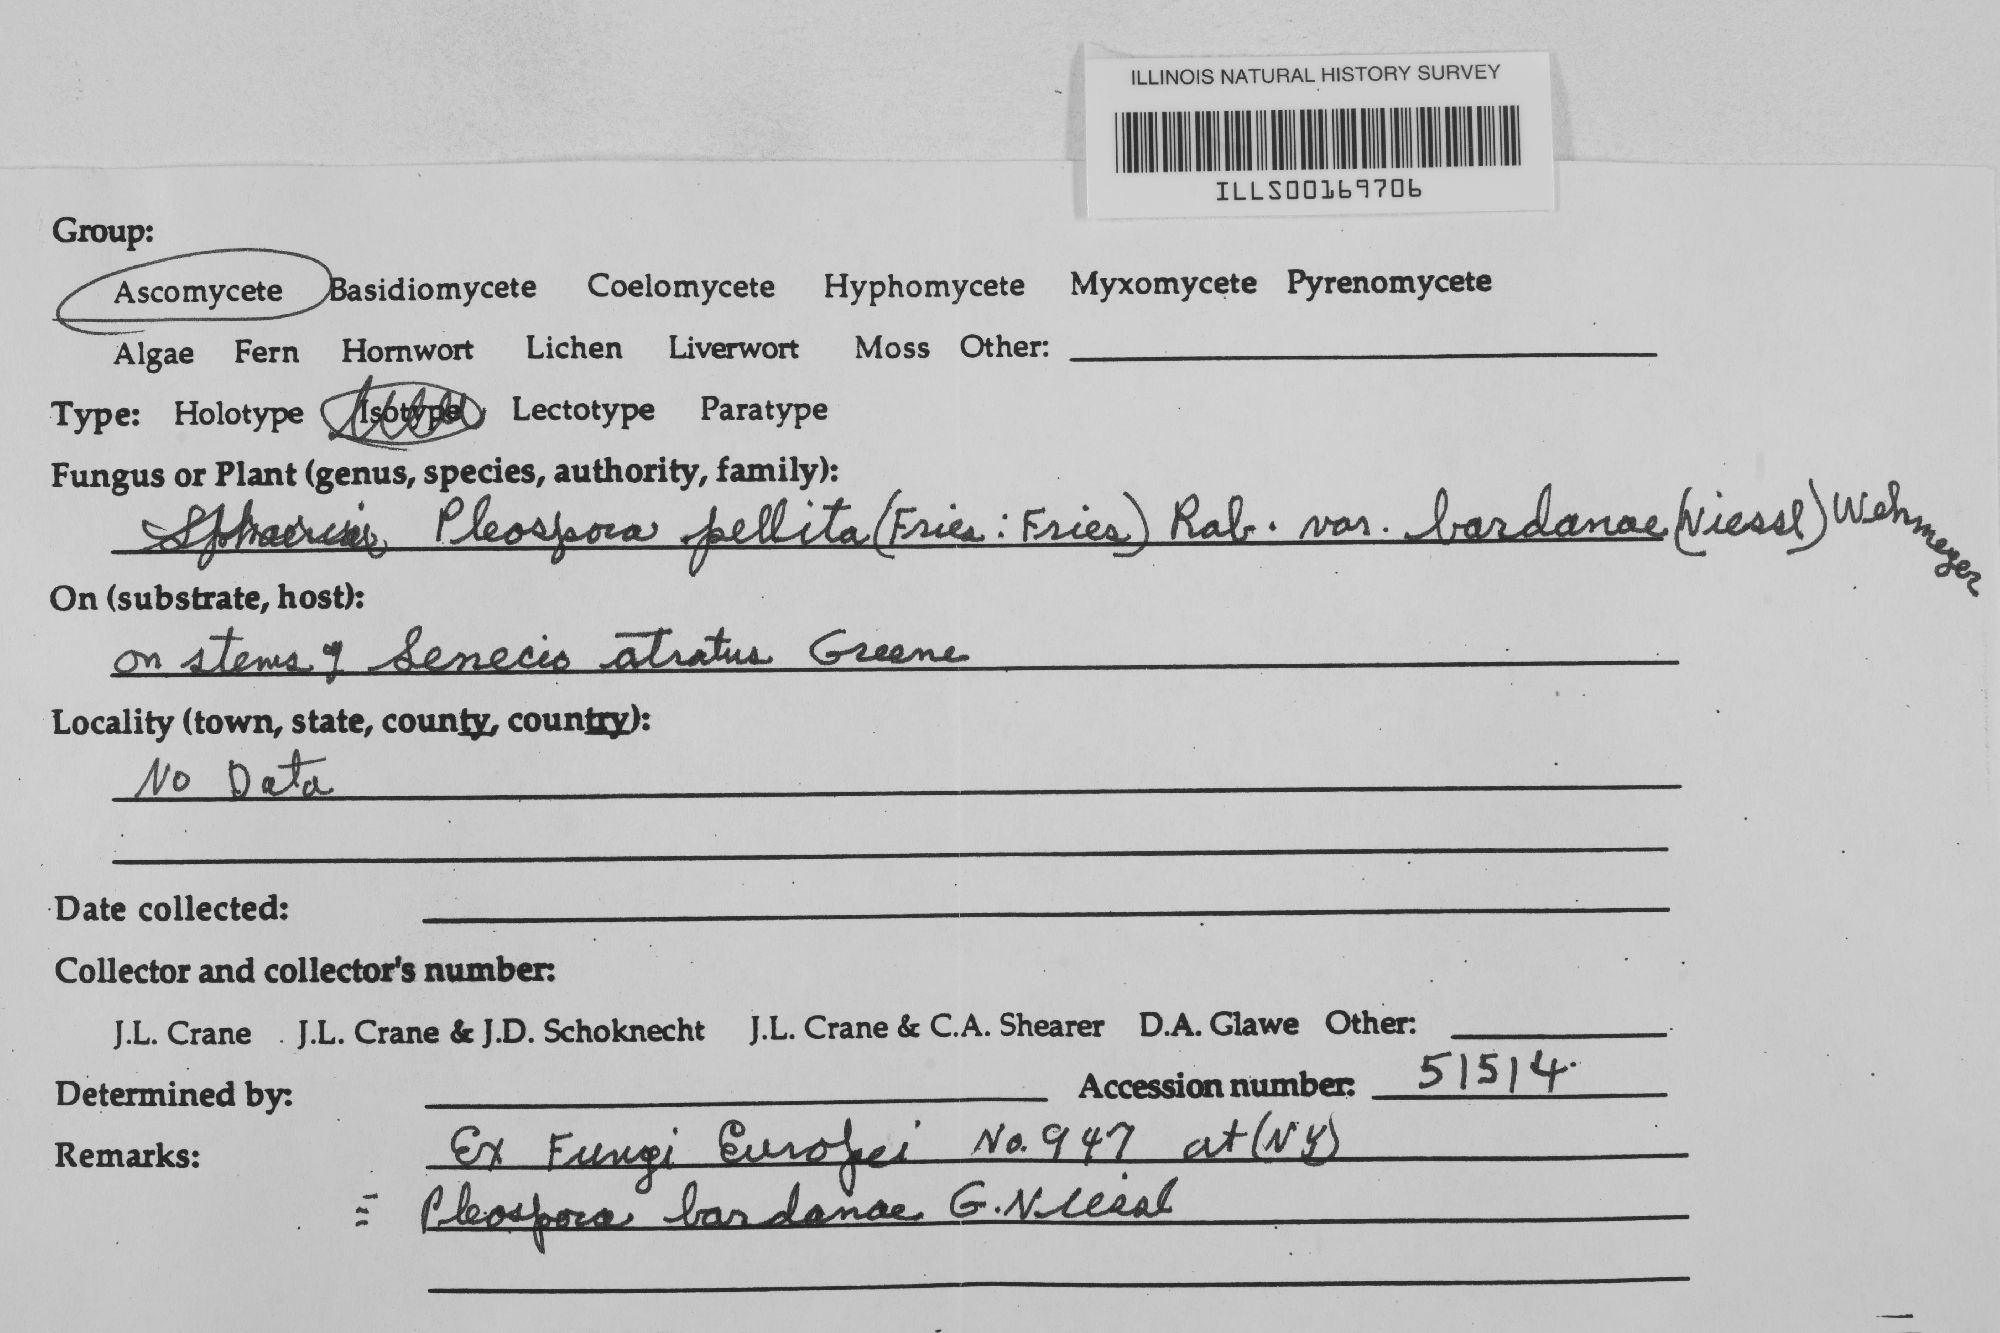 ILLINOIS NATURAL HISTORY SURVEY
ILLS00169706
Group:
Ascomycete Basidiomycete Coelomycete Hyphomycete Myxomycete Pyrenomycete
Algae Fern Hornwort Lichen Liverwort Moss Other:
Type: Holotype Isotype Lectotype Paratype
Fungus or Plant (genus, species, authority, family):
Pleospora pellita (Fries : Fries) Rab. var. bardanae (Niessl) Wehmeyer
On (substrate, host):
on stems of Senecio atratus Greene
Locality (town, state, county, country):
No Data
Date collected:
Collector and collector's number:
J.L. Crane J.L. Crane & J.D. Schoknecht J.L. Crane & C.A. Shearer D.A. Glawe Other:
Determined by: Accession number: 51514
Remarks: Ex Fungi Europei No. 947 at (NY)
≡ Pleospora bardanae G. Niessl